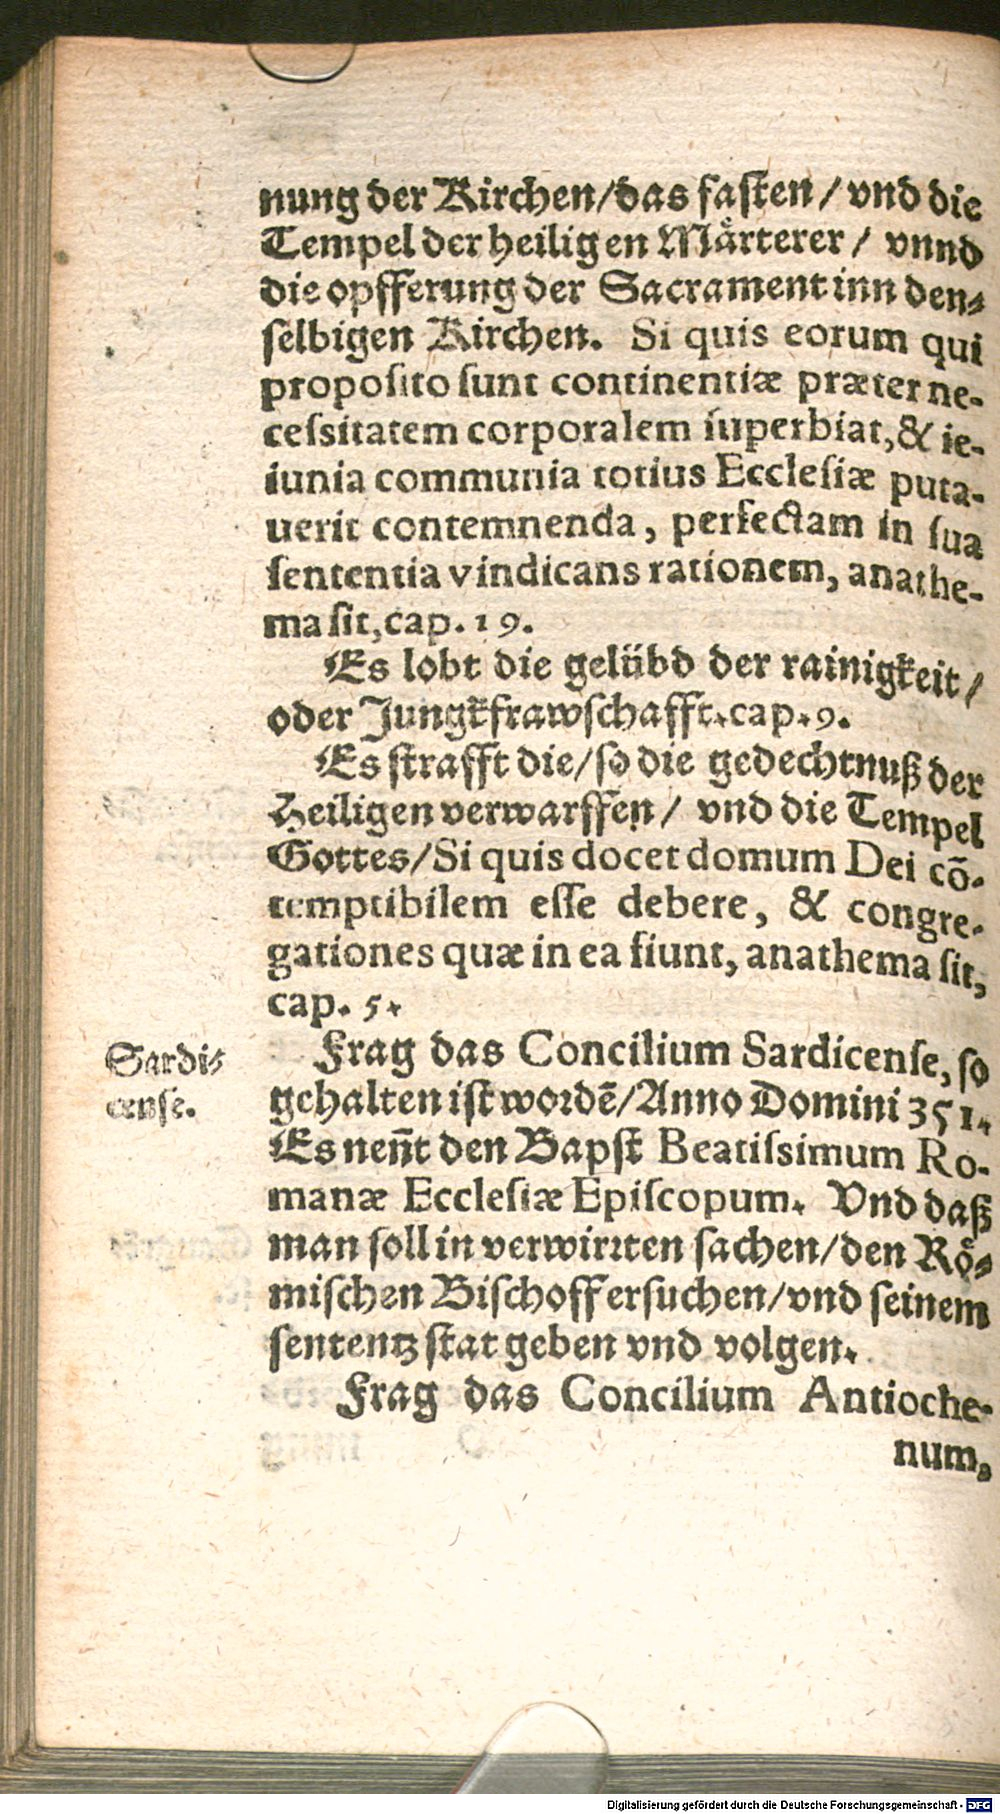 nung der Kirchen/das fasten/ vnd die
Tempel der heiligen Maͤrterer/ vnnd
die opfferung der Sacrament inn den⸗
selbigen Kirchen. Si quis eorum qui
proposito sunt continentiæ præter ne-
cessitatem corporalem superbiat,& ie-
iunia communia totius Ecclesiæ puta-
uerit contemnenda, perfectam in sua
sententia vindicans rationem, anathe-
ma sit,cap.19.
Es lobt die gelübd der rainigkeit/
oder Jungkfrawschafft.cap.9.
Es strafft die/so die gedechtnuß der
Heiligen verwarffen/ vnd die Tempel
Gottes/Si quis docet domum Dei cō-
temptibilem esse debere, & congre-
gationes quæ in ea fiunt, anathema sit,
cap. 5.
Sardi⸗
cense.
Frag das Concilium Sardicense, so
gehalten ist wordē/Anno Domini 351.
Es nen̄t den Bapst Beatissimum Ro-
manæ Ecclesiæ Episcopum. Vnd daß
man soll in verwirrten sachen/den Roͤ⸗
mischen Bischoff ersuchen/vnd seinem
sententz stat geben vnd volgen.
Frag das Concilium Antioche-
num,
Digitalisierung gefördert durch die Deutsche Forschungsgemeinschaft - DFG